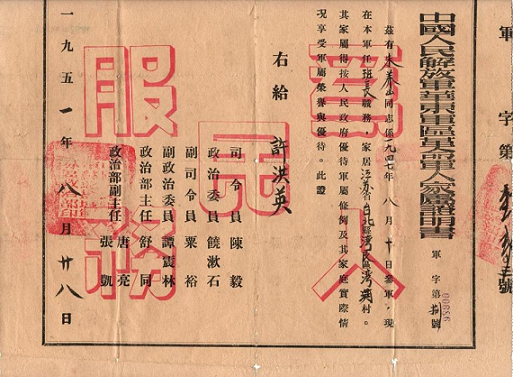 軍字第號
中國人民解放軍華東軍區革命軍人家屬證明書
軍字第號
00856
茲有山同志係一九四七年八月十日參軍，現
在本軍任班長職務，家居江蘇省台北縣區村。
其家屬得按人民政府優待軍屬條例及其家庭實際情
況享受軍屬榮譽與優待。此證
右給 許洪英
司令員 陳毅
政治委員 饒漱石
副司令員 粟裕
副政治委員 譚震林
政治部主任 舒同
政治部副主任 唐亮 張凱
一九五一年八月廿八日
為人民服務